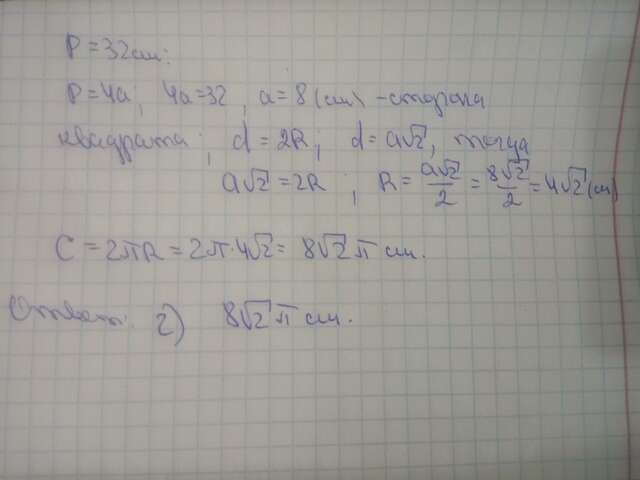 P = 32 см:
P = 4a; 4a = 32, a = 8 (см) - сторона
квадрата; d = 2R; d = a√2, тогда
a√2 = 2R; R = a√2/2 = 8√2/2 = 4√2 (см)
C = 2πR = 2π·4√2 = 8√2 π см.
Ответ: г) 8√2 π см.